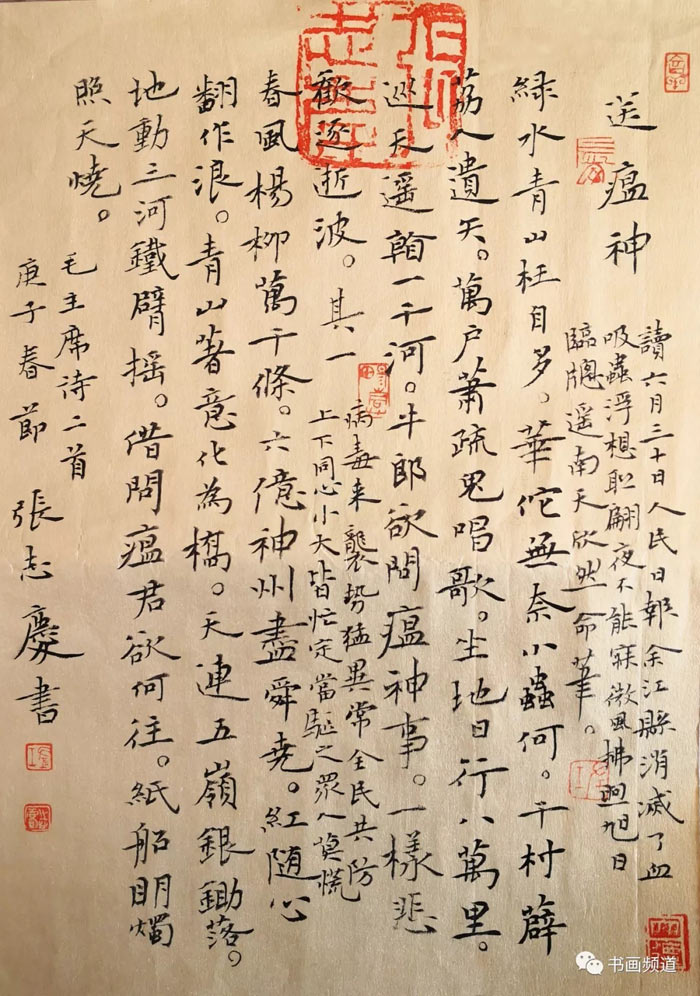 送瘟神
讀六月三十日人民日報余江縣消滅了血
吸蟲浮想聯翩夜不能寐微風拂煦旭日
臨牎遥南天欣然命筆。
綠水青山枉自多。華佗無奈小蟲何。千村薜
荔人遺矢。萬户蕭疏鬼唱歌。坐地日行八萬里。
巡天遥一千河。牛郎欲問瘟神事。一樣悲
歡逐逝波。其一
病毒来襲势猛異常全民共防
上下同心小大皆忙定當驅之眾人莫慌
春風楊柳萬千條。六億神州盡舜堯。紅随心
翻作浪。青山著意化為橋。天連五嶺銀鋤落。
地動三河鐵臂摇。借問瘟君欲何往。紙船明燭
照天燒。
毛主席诗二首
庚子春節 張志慶書
书画频道